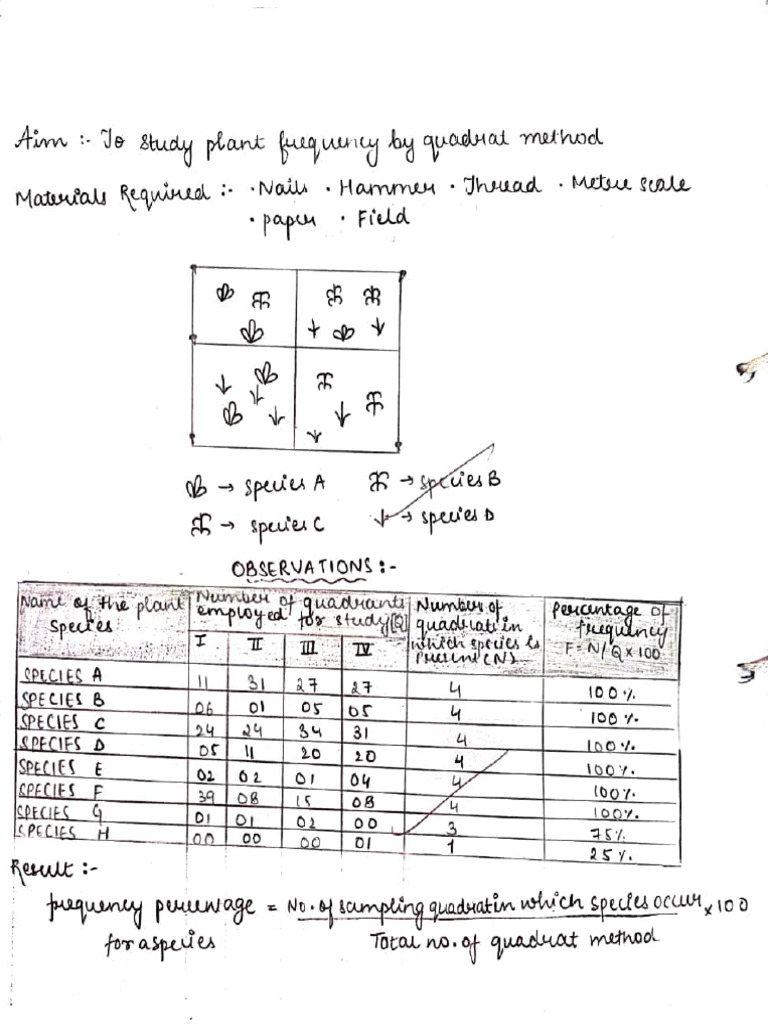 Aim :- To study plant frequency by quadrat method
Materials Required :- • Nails • Hammer • Thread • Metre scale
• paper • Field
→ species A → species B
→ species C → species D
OBSERVATIONS :-
Name of the plant species | Number of quadrants employed for study(Q) | Number of quadrats in which species is present (N) | Percentage of frequency F = N/Q x 100
I II III IV
SPECIES A 11 31 27 27 4 100%
SPECIES B 06 01 05 05 4 100%
SPECIES C 24 24 34 31 4 100%
SPECIES D 05 11 20 20 4 100%
SPECIES E 02 02 01 04 4 100%
SPECIES F 39 08 15 08 4 100%
SPECIES G 01 01 02 00 3 75%
SPECIES H 00 00 00 01 1 25%
Result :-
frequency percentage = No. of sampling quadrat in which species occur x 100
for a species Total no. of quadrat method